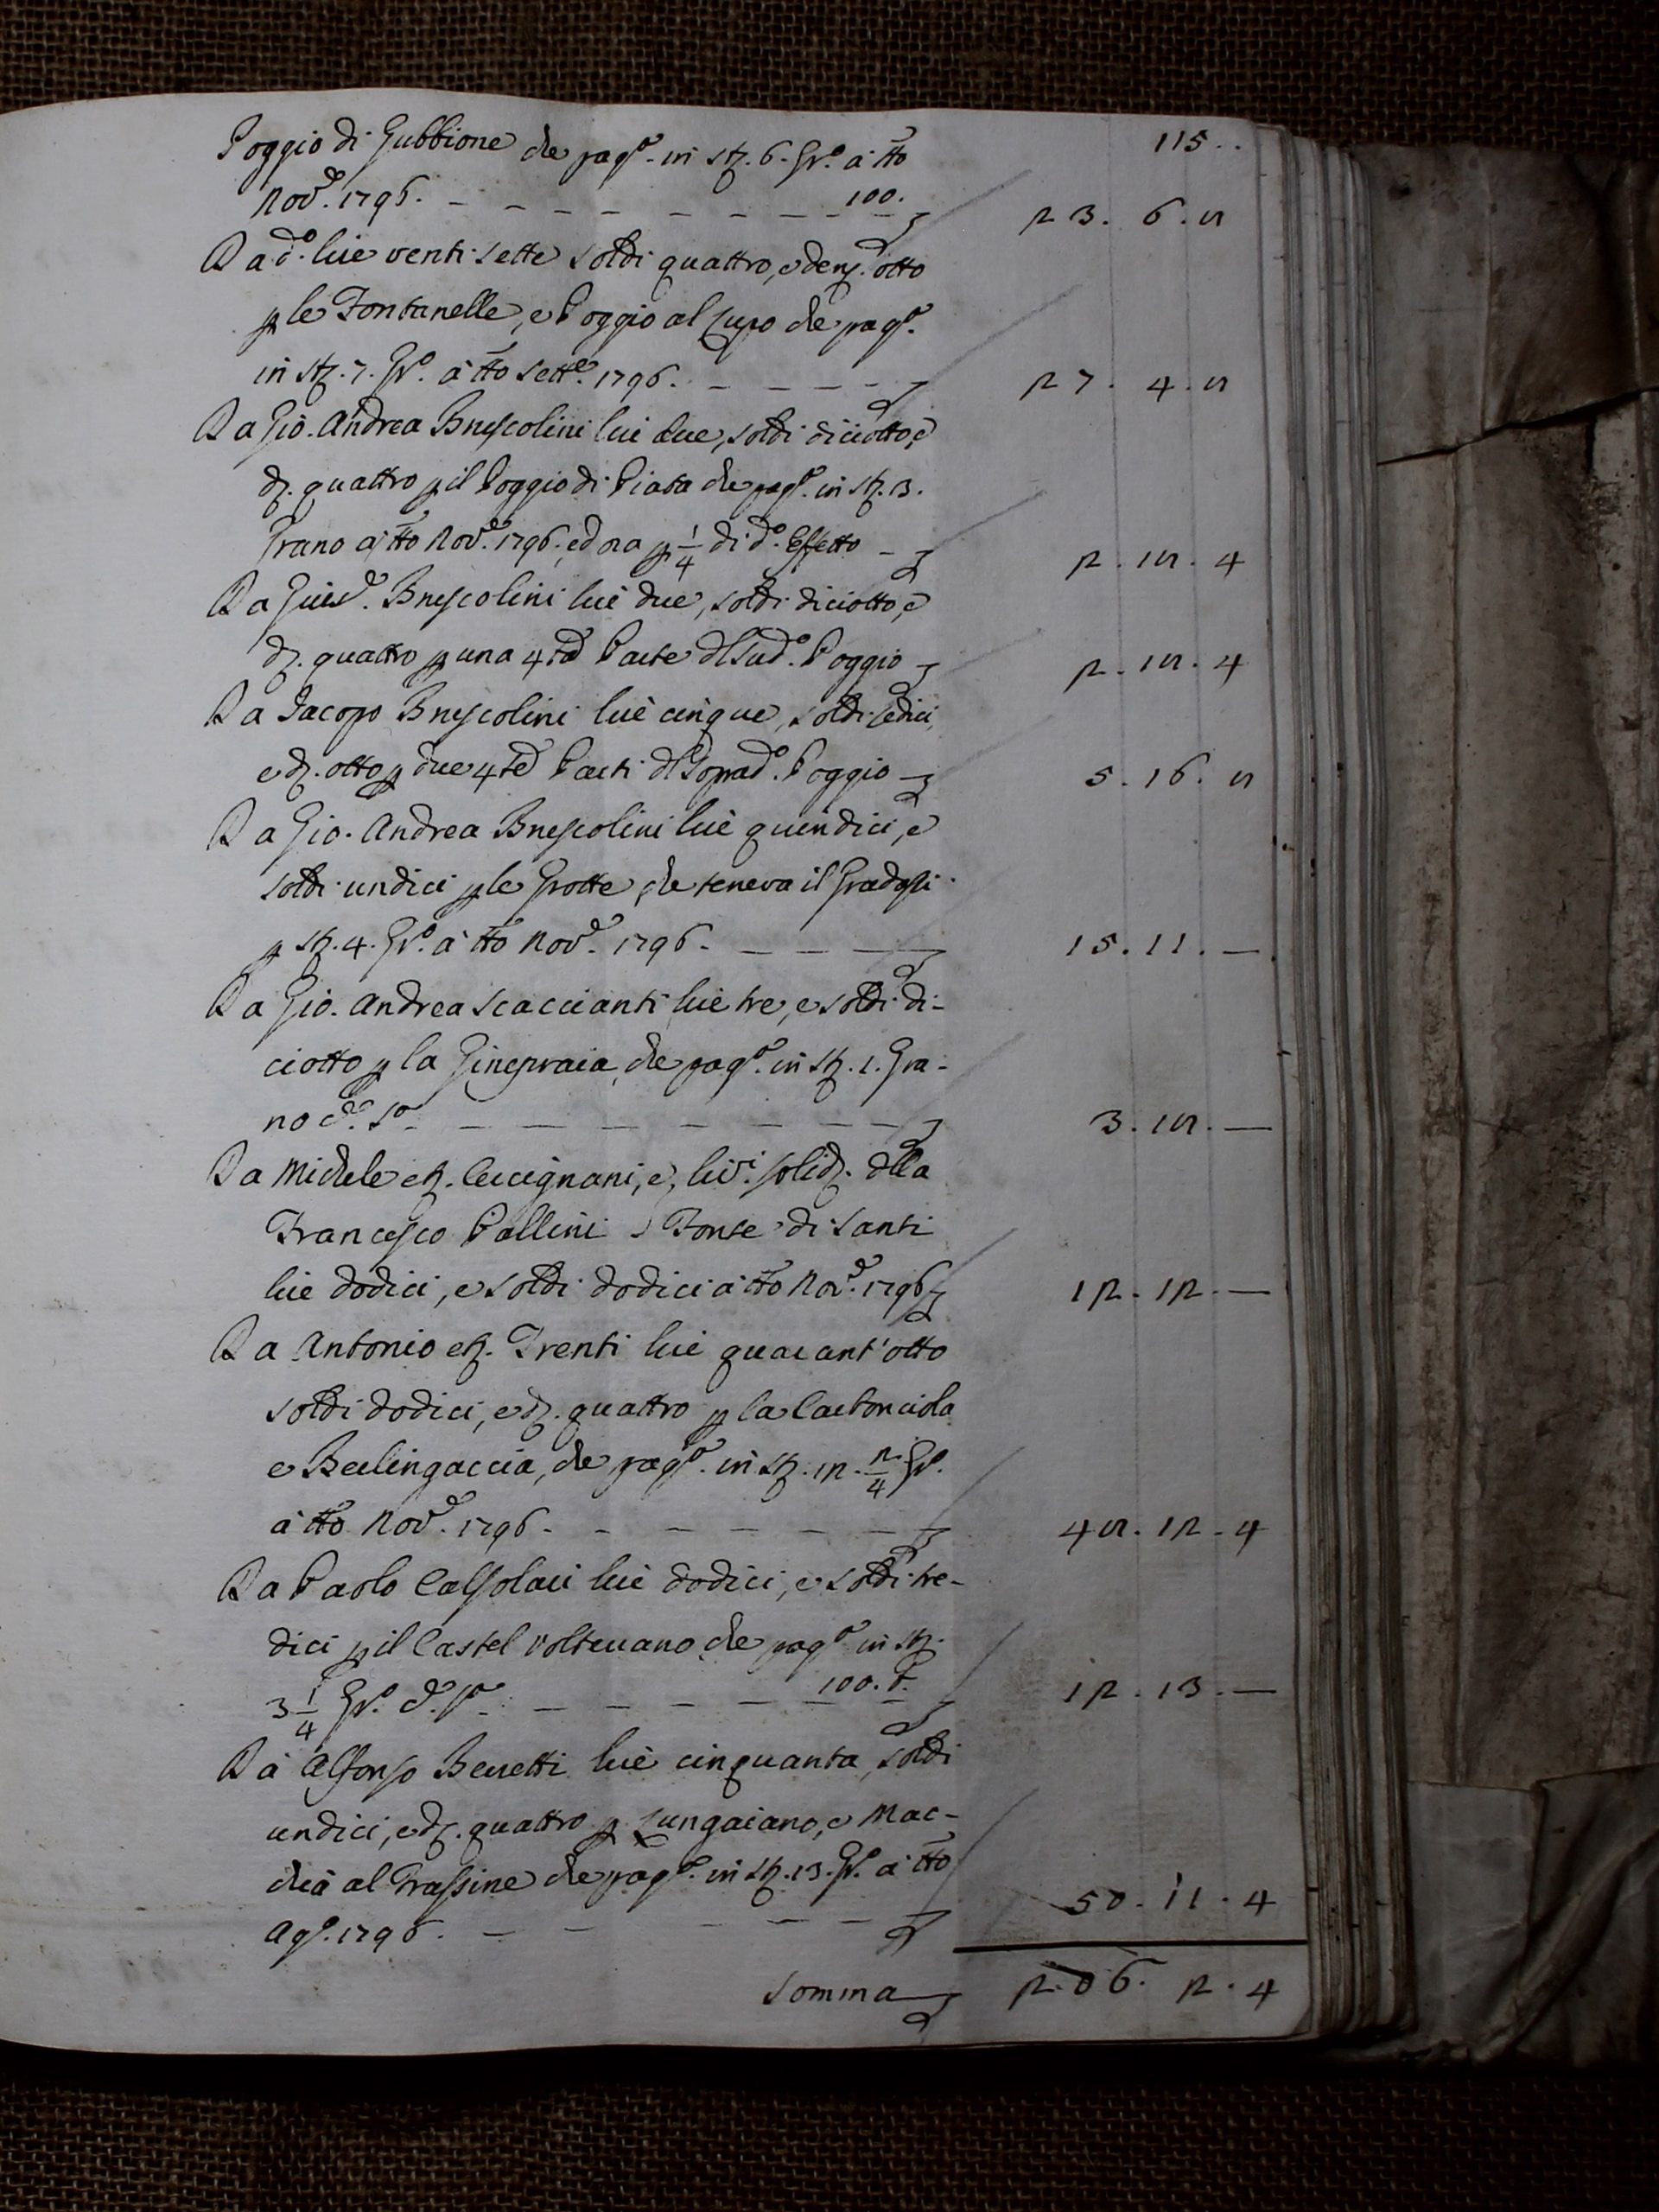 115..
Poggio di Gubbione che pag.º in st. 6. Gr.º a tto
Nov.e 1796. — — — — — — — 100. — 23. 6. 8
Da d.º lire venti sette soldi quattro, e den. otto
p le Fontanelle, e Poggio al Lupo che pag.º
in st. 7. Gr.º a tto Sett.e 1796. — — — — — 27. 4. 8
Da Gio. Andrea Brescolini lire due, soldi diciotto, e
d. quattro p il Poggio di Piata che pag.º in st. 3.
Grano a tto Nov.e 1796, ed ora p 1/4 di d.º Effetto — 2. 18. 4
Da Gius.e Brescolini lire due, soldi diciotto, e
d. quattro p una 4.ta Parte dl Sud.º Poggio — 2. 18. 4
Da Jacopo Brescolini lire cinque, soldi sedici,
e d. otto p due 4.te Parti dl Soprad.º Poggio — 5. 16. 8
Da Gio. Andrea Brescolini lire quindici, e
soldi undici p le Grotte, che teneva il
p st. 4. Gr.º a tto Nov.e 1796. — — — — 15. 11. —
Da Gio. Andrea Scaccianti lire tre, e soldi di-
ciotto p la Ginepraia, che pag.º in st. 1. Gra-
no d.º — — — — — — — — 3. 18. —
Da Michele et. Cecignani, e, liv.i solid. dlla
Francesco Pallini Fonte di Santi
lire dodici, e soldi dodici a tto Nov.e 1796 12. 12. —
Da Antonio et. Trenti lire quarant'otto
soldi dodici, e d. quattro p la Carbonciola
e Berlingaccia, che pag.º in st. 12. 2/4 Gr.º
a tto Nov.e 1796. — — — — — — — 48. 12. 4
Da Paolo Calsolari lire dodici, e soldi tre-
dici p il Castel Volterrano che pag.º in st.
3 1/4 Gr.º d.º — — — — — 100. — 12. 13. —
Da Alfonso Benetti lire cinquanta, soldi
undici, e d. quattro p Lungaiano, e Mac-
chia al Frassine che pag.º in st. 13. Gr.º a tto
Ag.º 1796. — — — — — — 50. 11. 4
Somma 2.06. 2. 4